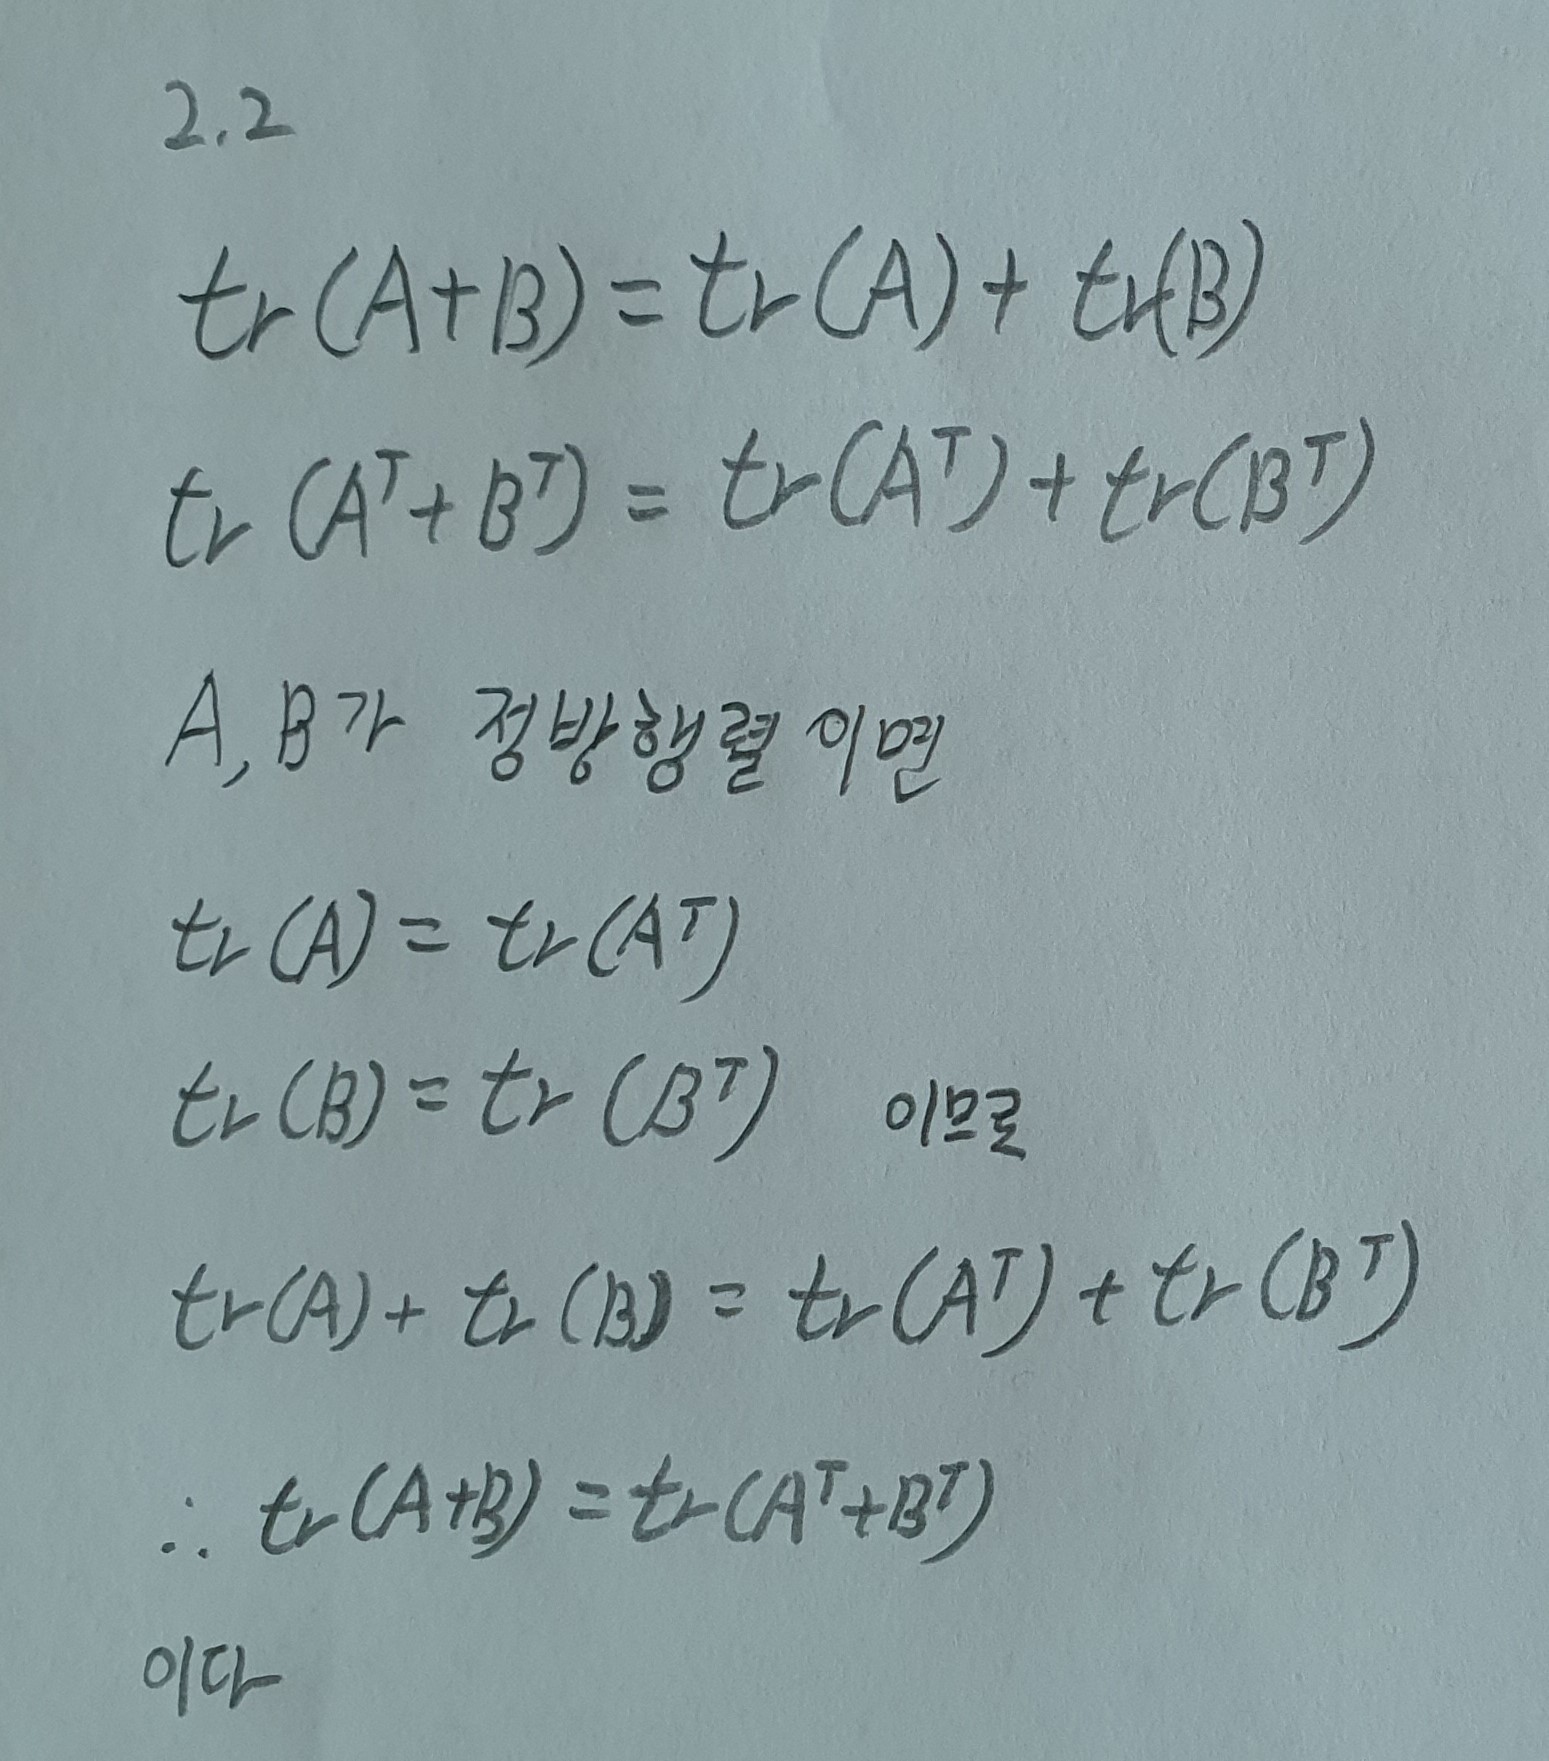 2.2
tr(A+B) = tr(A) + tr(B)
tr(Aᵀ+Bᵀ) = tr(Aᵀ) + tr(Bᵀ)
A, B가 정방행렬 이면
tr(A) = tr(Aᵀ)
tr(B) = tr(Bᵀ) 이므로
tr(A) + tr(B) = tr(Aᵀ) + tr(Bᵀ)
∴ tr(A+B) = tr(Aᵀ+Bᵀ)
이다